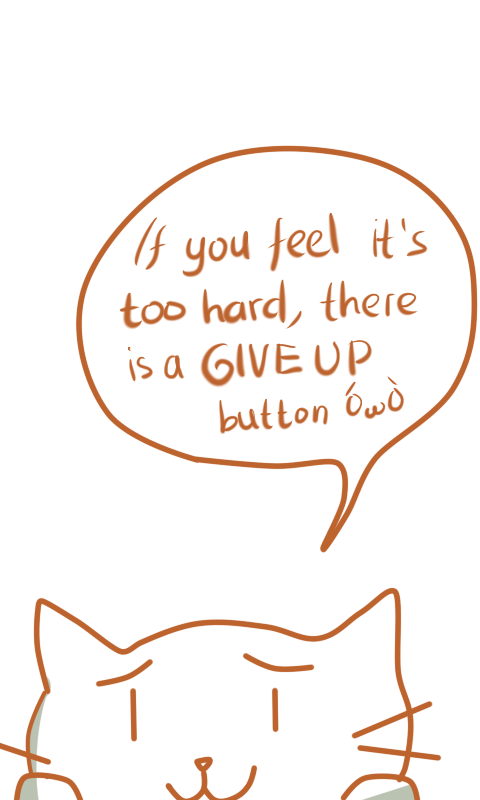 If you feel it's
too hard, there
is a GIVE UP
button ÓωÒ